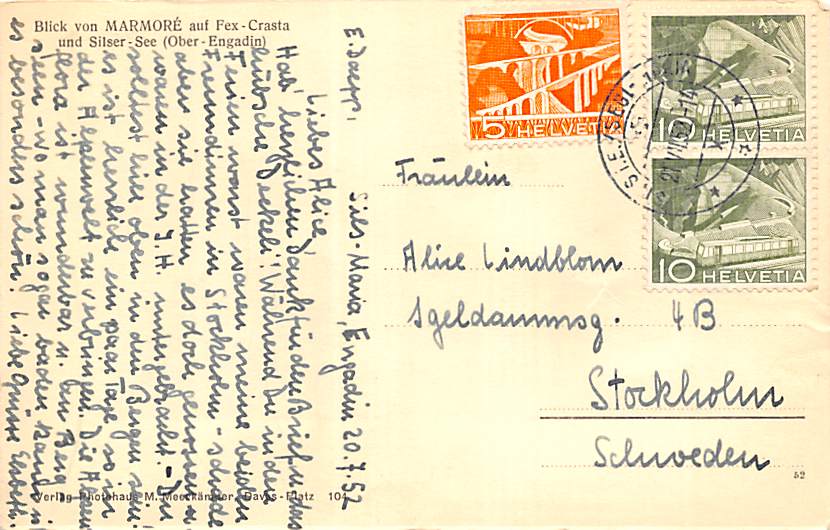 Blick von MARMORÉ auf Fex-Crasta
und Silser-See (Ober-Engadin)
E. Daepp,
Sils-Maria, Engadin 20.7.52
Liebes Alice
Hab' herzlichen Dank für den Brief u. das
hübsche Deckeli! Während Du in den
Ferien warst waren meine beiden
Freundinnen in Stockholm - schade
aber sie hatten es doch genossen u.
waren in der J.H. untergebracht. - Du
solltest hier oben in den Bergen sein!
es ist herrlich ein paar Tage so in
der Alpenwelt zu verbringen. Die Alpen
flora ist wunderbar u. im Berg
seen - wo man sogar baden kann is
es besonders schön! Liebe Grüsse Elsbeth.
Verlag Photohaus M. Meerkämper, Davos-Platz 104
5 HELVETIA
10 HELVETIA
10 HELVETIA
Fräulein
Alice Lindblom
Igeldammsg. 4B
Stockholm
Schweden
52